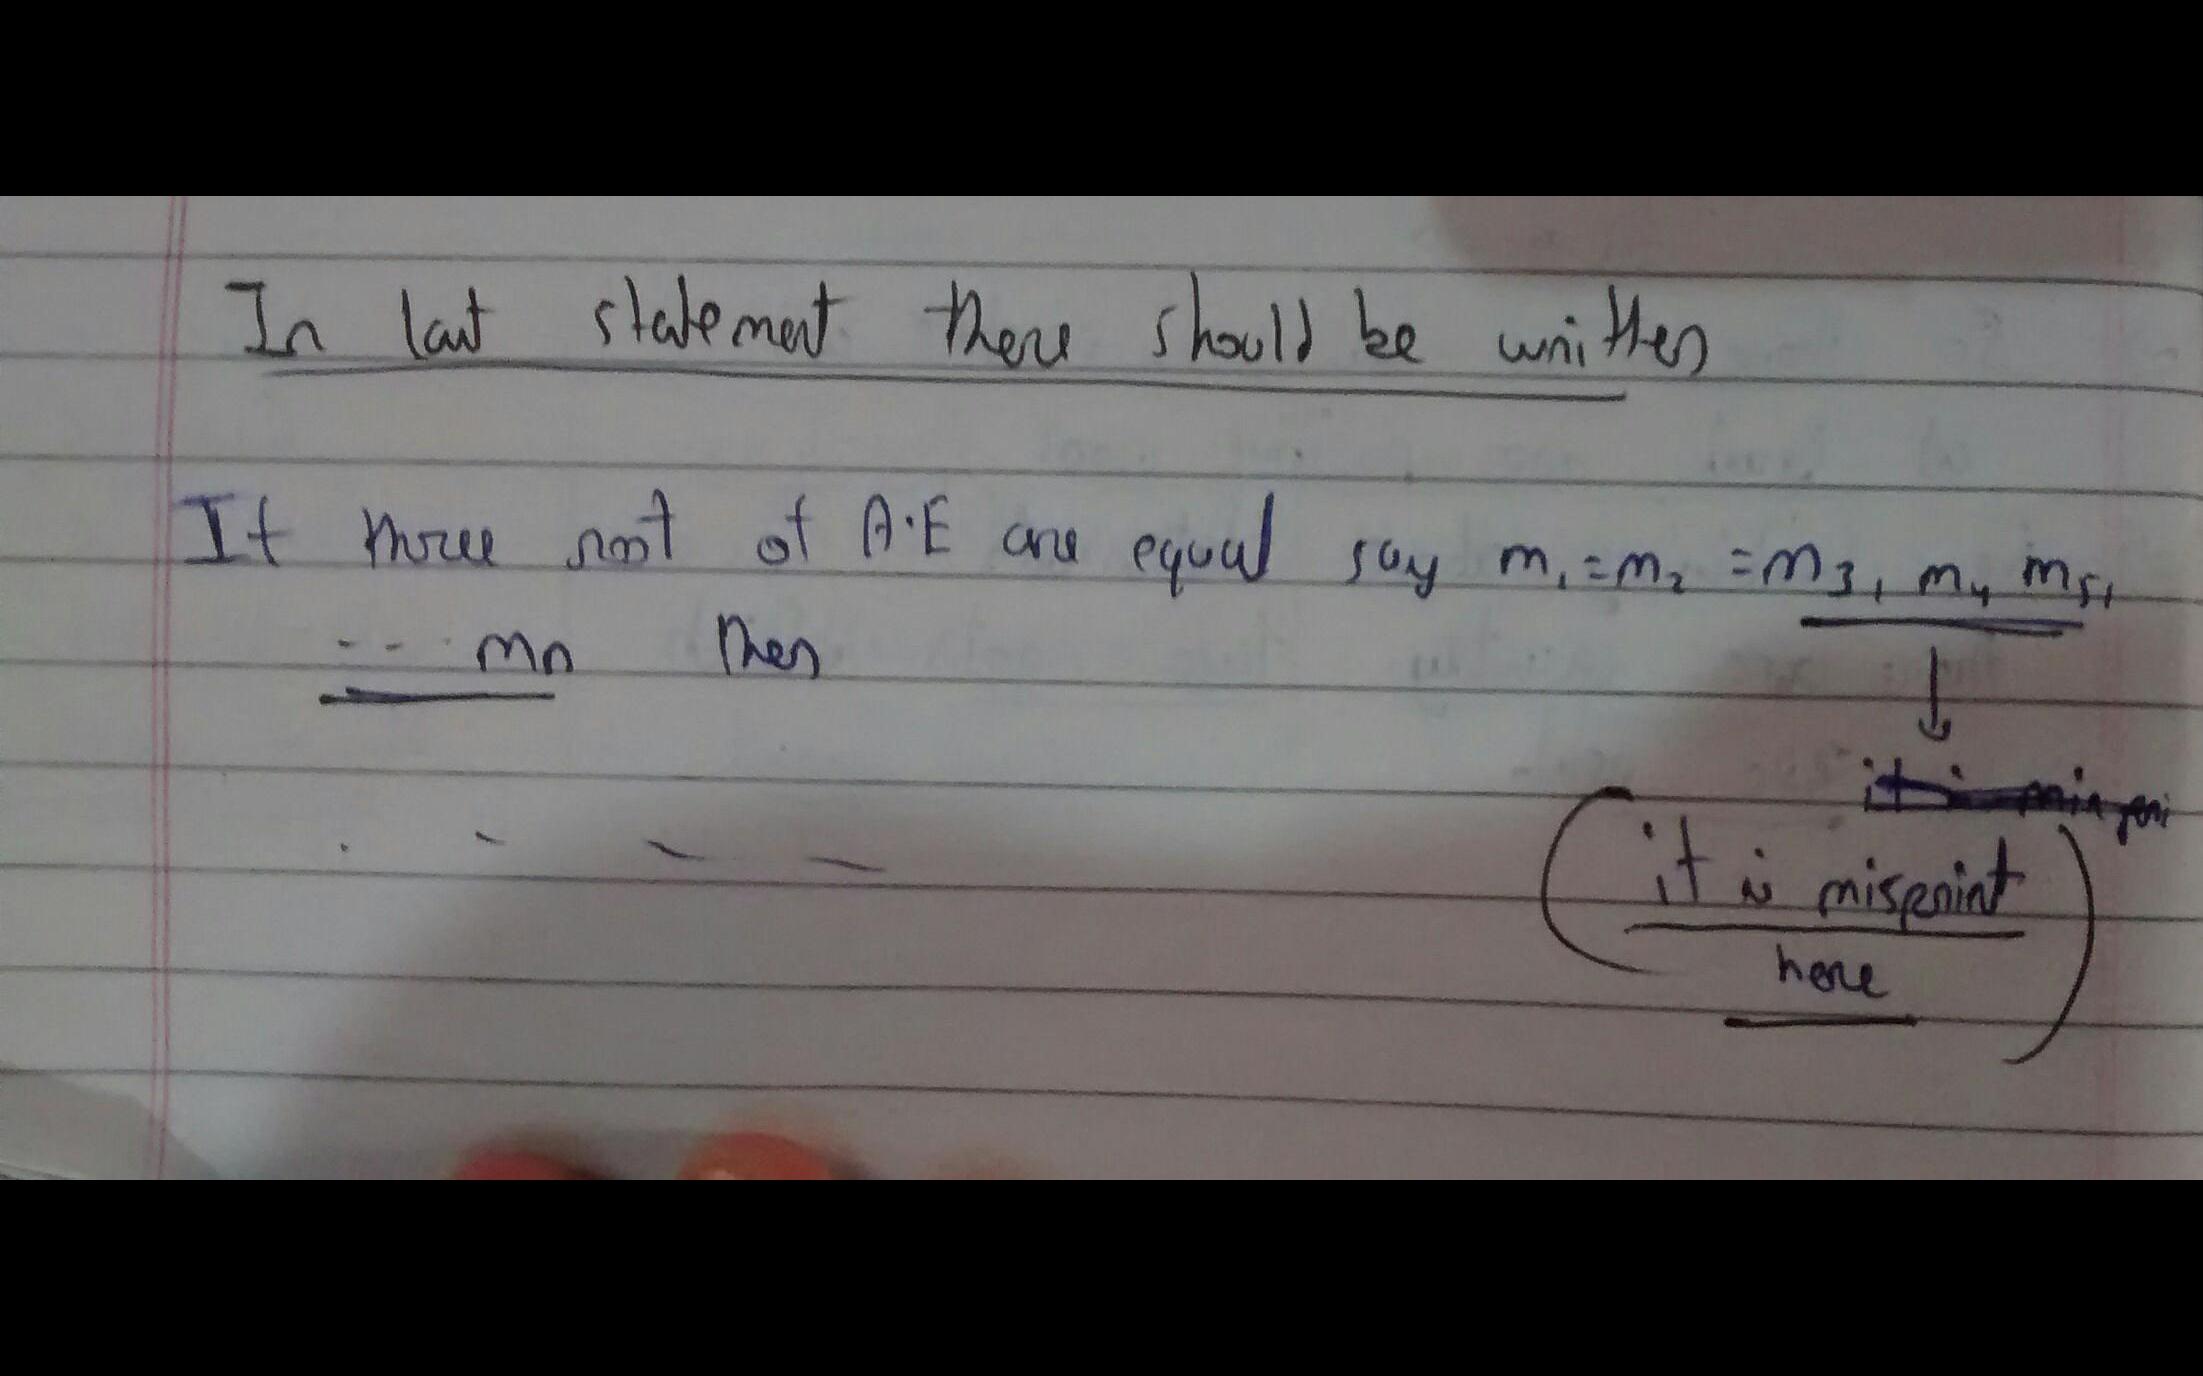 In last statement there should be written
If three root of A.E are equal say m₁=m₂=m₃, m₄ m₅,
... mn then
it is misprint
here